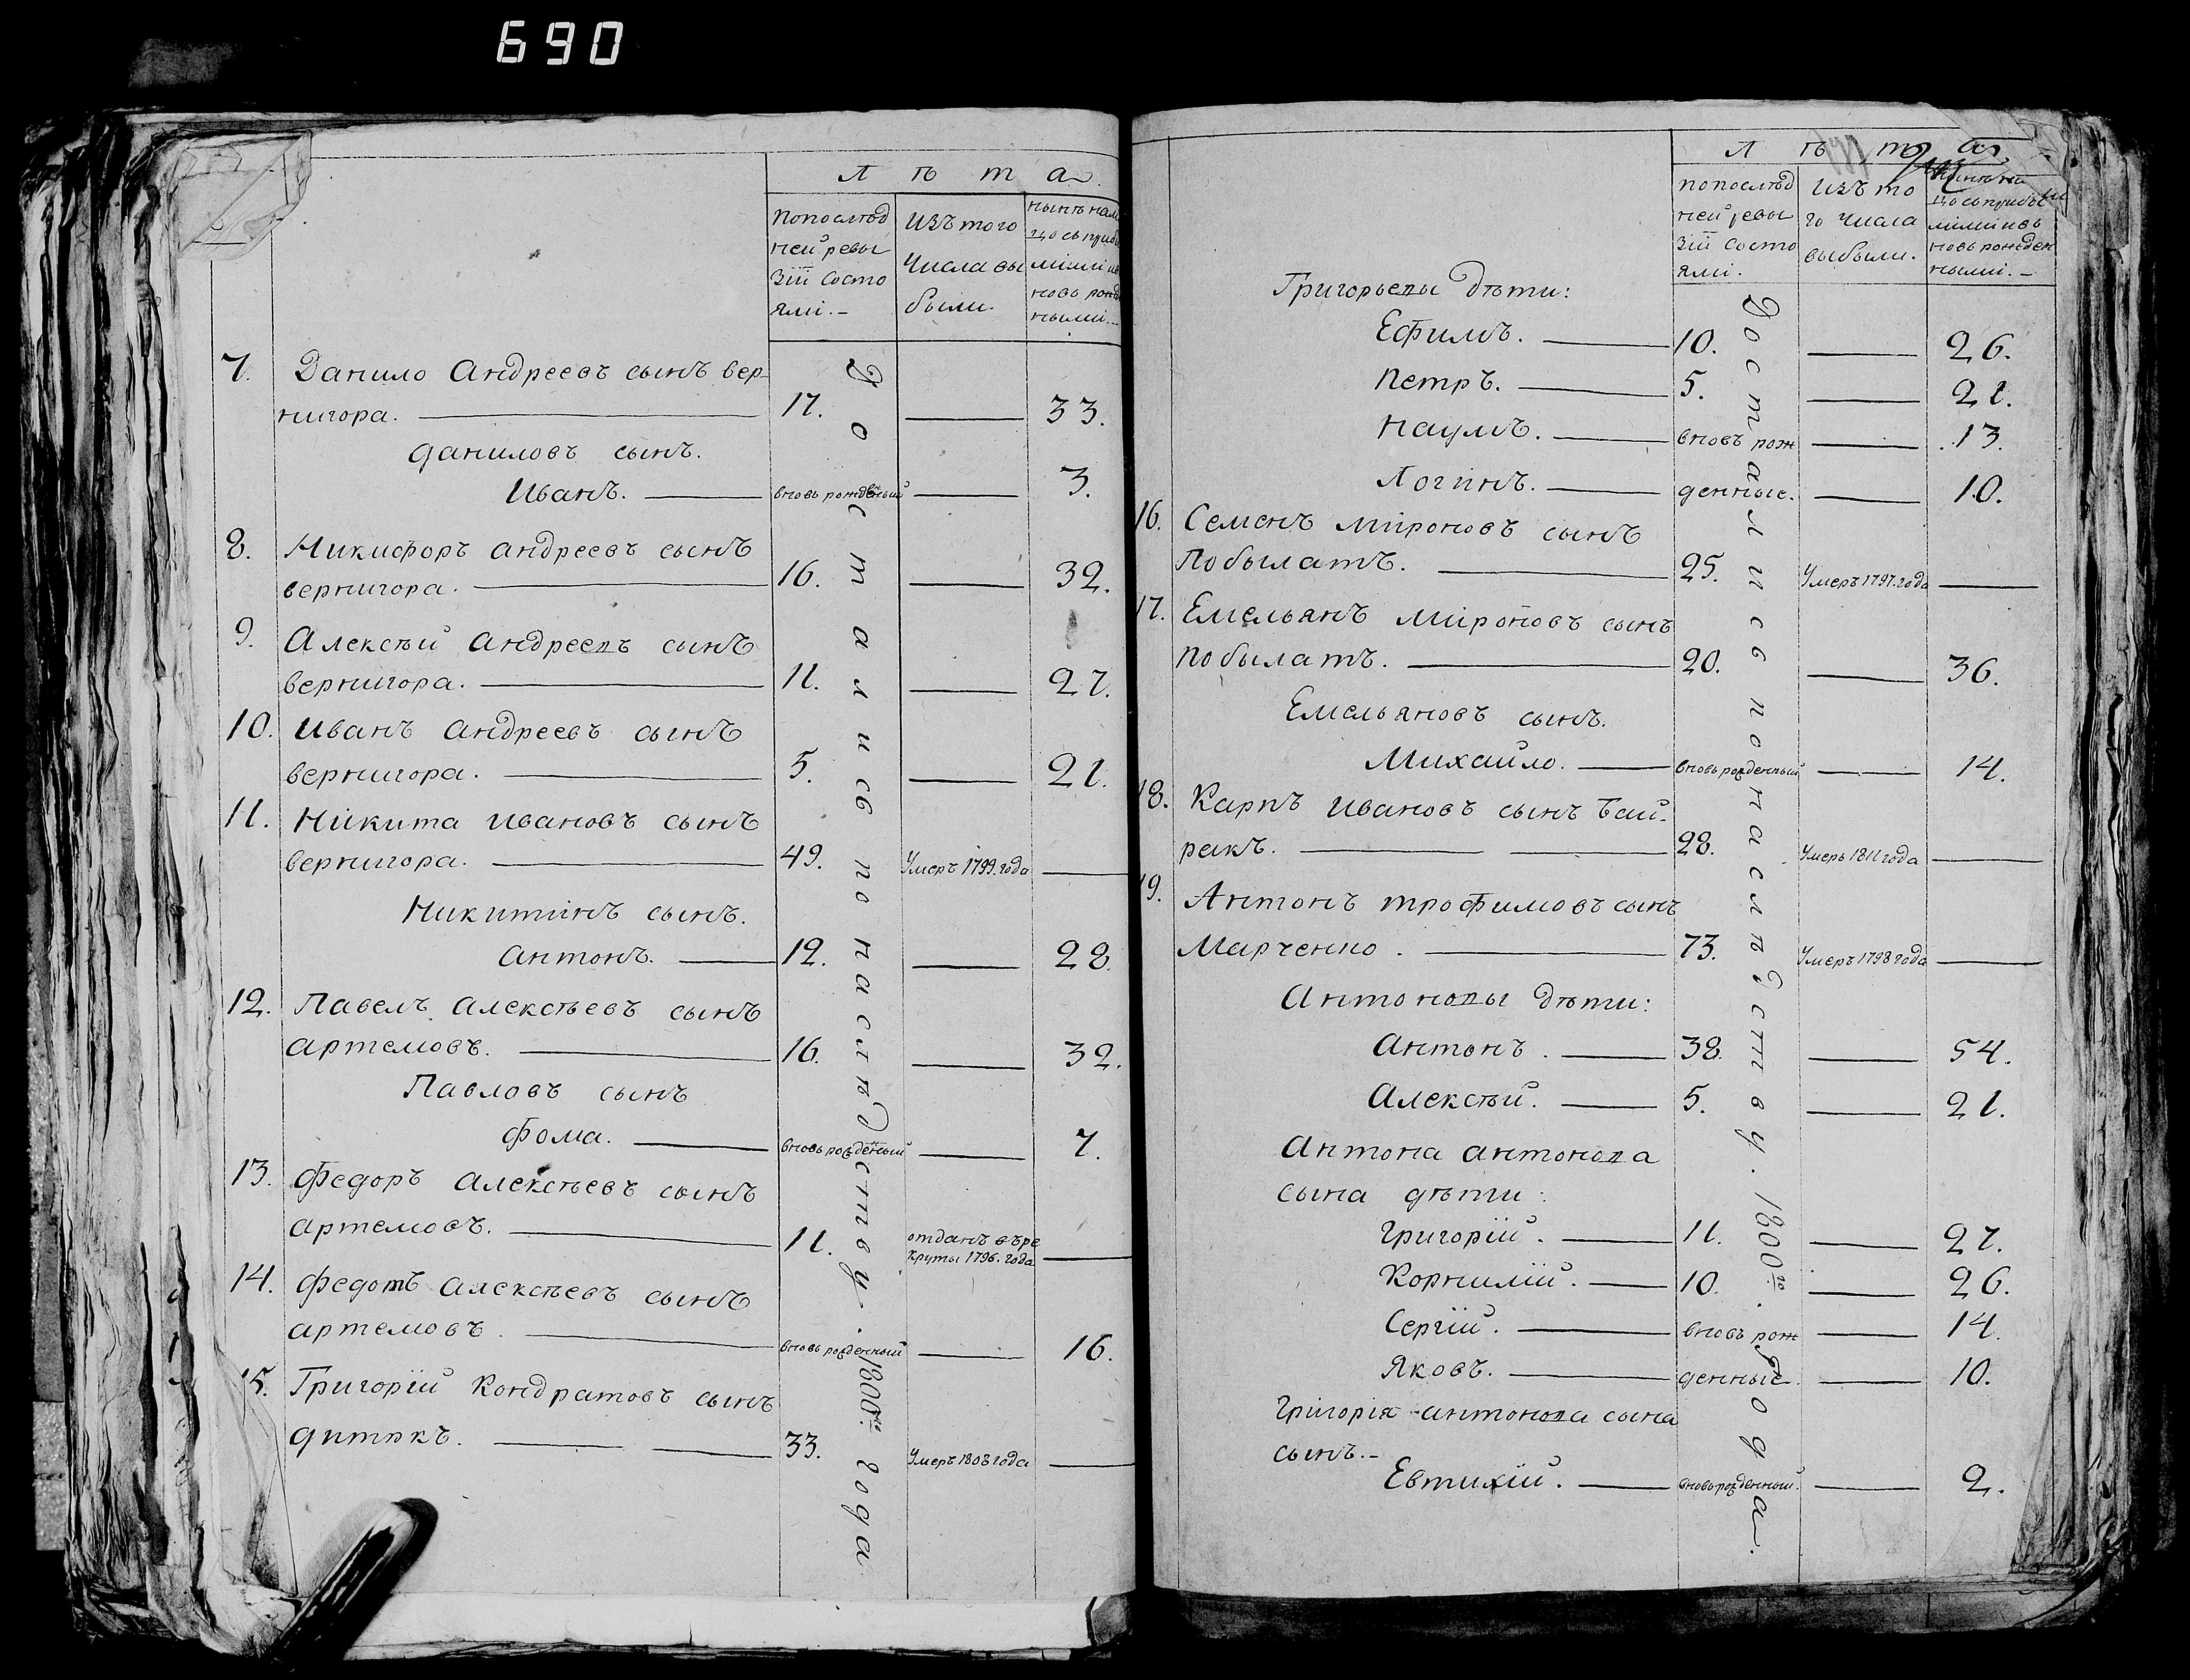 690
Л ѣ т а
попослѣд
ней ревы
зіи состо
яли.-
изъ того
числа вы
были.
нынѣ нали
цо съ приб
мілііи
новь рожд
ными.-
7. Данило Андреевъ сынъ вер-
нигора. 17. 33.
даниловъ сынъ.
Иванъ. вновь рожденный 3.
8. Никифоръ андреевъ сынъ
вернигора. 16. 32.
9. Алексѣй Андреевъ сынъ
вернигора. 11. 27.
10. Иванъ Андреевъ сынъ
вернигора. 5. 21.
11. Никита Ивановъ сынъ
вернигора. 49. Умеръ 1799. года
Никитинъ сынъ.
Антонъ. 12. 28.
12. Павелъ алексѣевъ сынъ
артемовъ. 16. 32.
Павловъ сынъ
Фома. вновь рожденный 7.
13. Федоръ Алексѣевъ сынъ
артемовъ. 11. отданъ въ ре
круты 1796. года
14. Федотъ алексѣевъ сынъ
артемовъ. вновь рожденный 16.
15. Григорій Кондратовъ сынъ
дитякъ. 33. Умеръ 1808 года
Достались по наслѣдству. 1800го года
Л ѣ т а
попослѣд
ней ревы
зіи состо
яли.
изъ то
го числа
выбыли.
новь рожден
ными.-
Григорьевы дѣти:
Ефимъ. 10. 26.
Петръ. 5. 21.
Наумъ. вновь рож 13.
Логинъ. денные. 10.
16. Семенъ Мироновъ сынъ
Побылатъ. 25. Умеръ 1797. года
17. Емельянъ Мироновъ сынъ
Побылатъ. 20. 36.
Емельяновъ сынъ.
Михайло. вновь рожденный 14.
18. Карпъ Ивановъ сынъ Бай-
ракъ. 28. Умеръ 1811 года
19. Антонъ трофимовъ сынъ
Марченко. 73. Умеръ 1798 года
Антоновы дѣти:
Антонъ. 38. 54.
Алексѣй. 5. 21.
Антона антонова
сына дѣти:
Григорій. 11. 27.
Корнилій. 10. 26.
Сергій. вновь рож 14.
Яковъ. денные. 10.
Григорія антонова сына
сынъ.-
Евтихій. вновь рожденный. 2.
Достались по наслѣдству. 1800го. года.